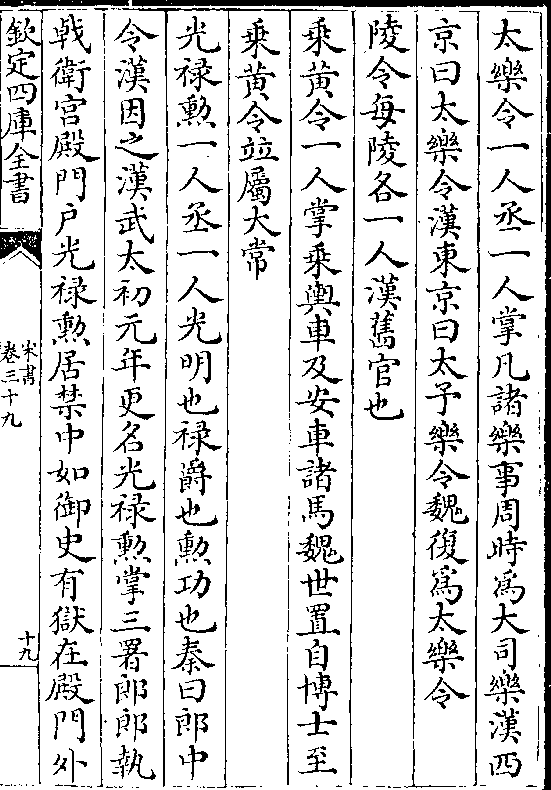 太樂令一人丞一人掌凡諸樂事周時爲大司樂漢西
京曰太樂令漢東京曰太予樂令魏復爲太樂令
陵令每陵各一人漢舊官也
乘黃令一人掌乘輿車及安車諸馬魏世置自博士至
乘黃令並屬大常
光祿勲一人丞一人光明也祿爵也勲功也秦曰郎中
令漢因之漢武太初元年更名光祿勲掌三署郎郎執
戟衛宮殿門户光祿勲居禁中如御史有獄在殿門外
欽定四庫全書
宋書
卷三十九
十九